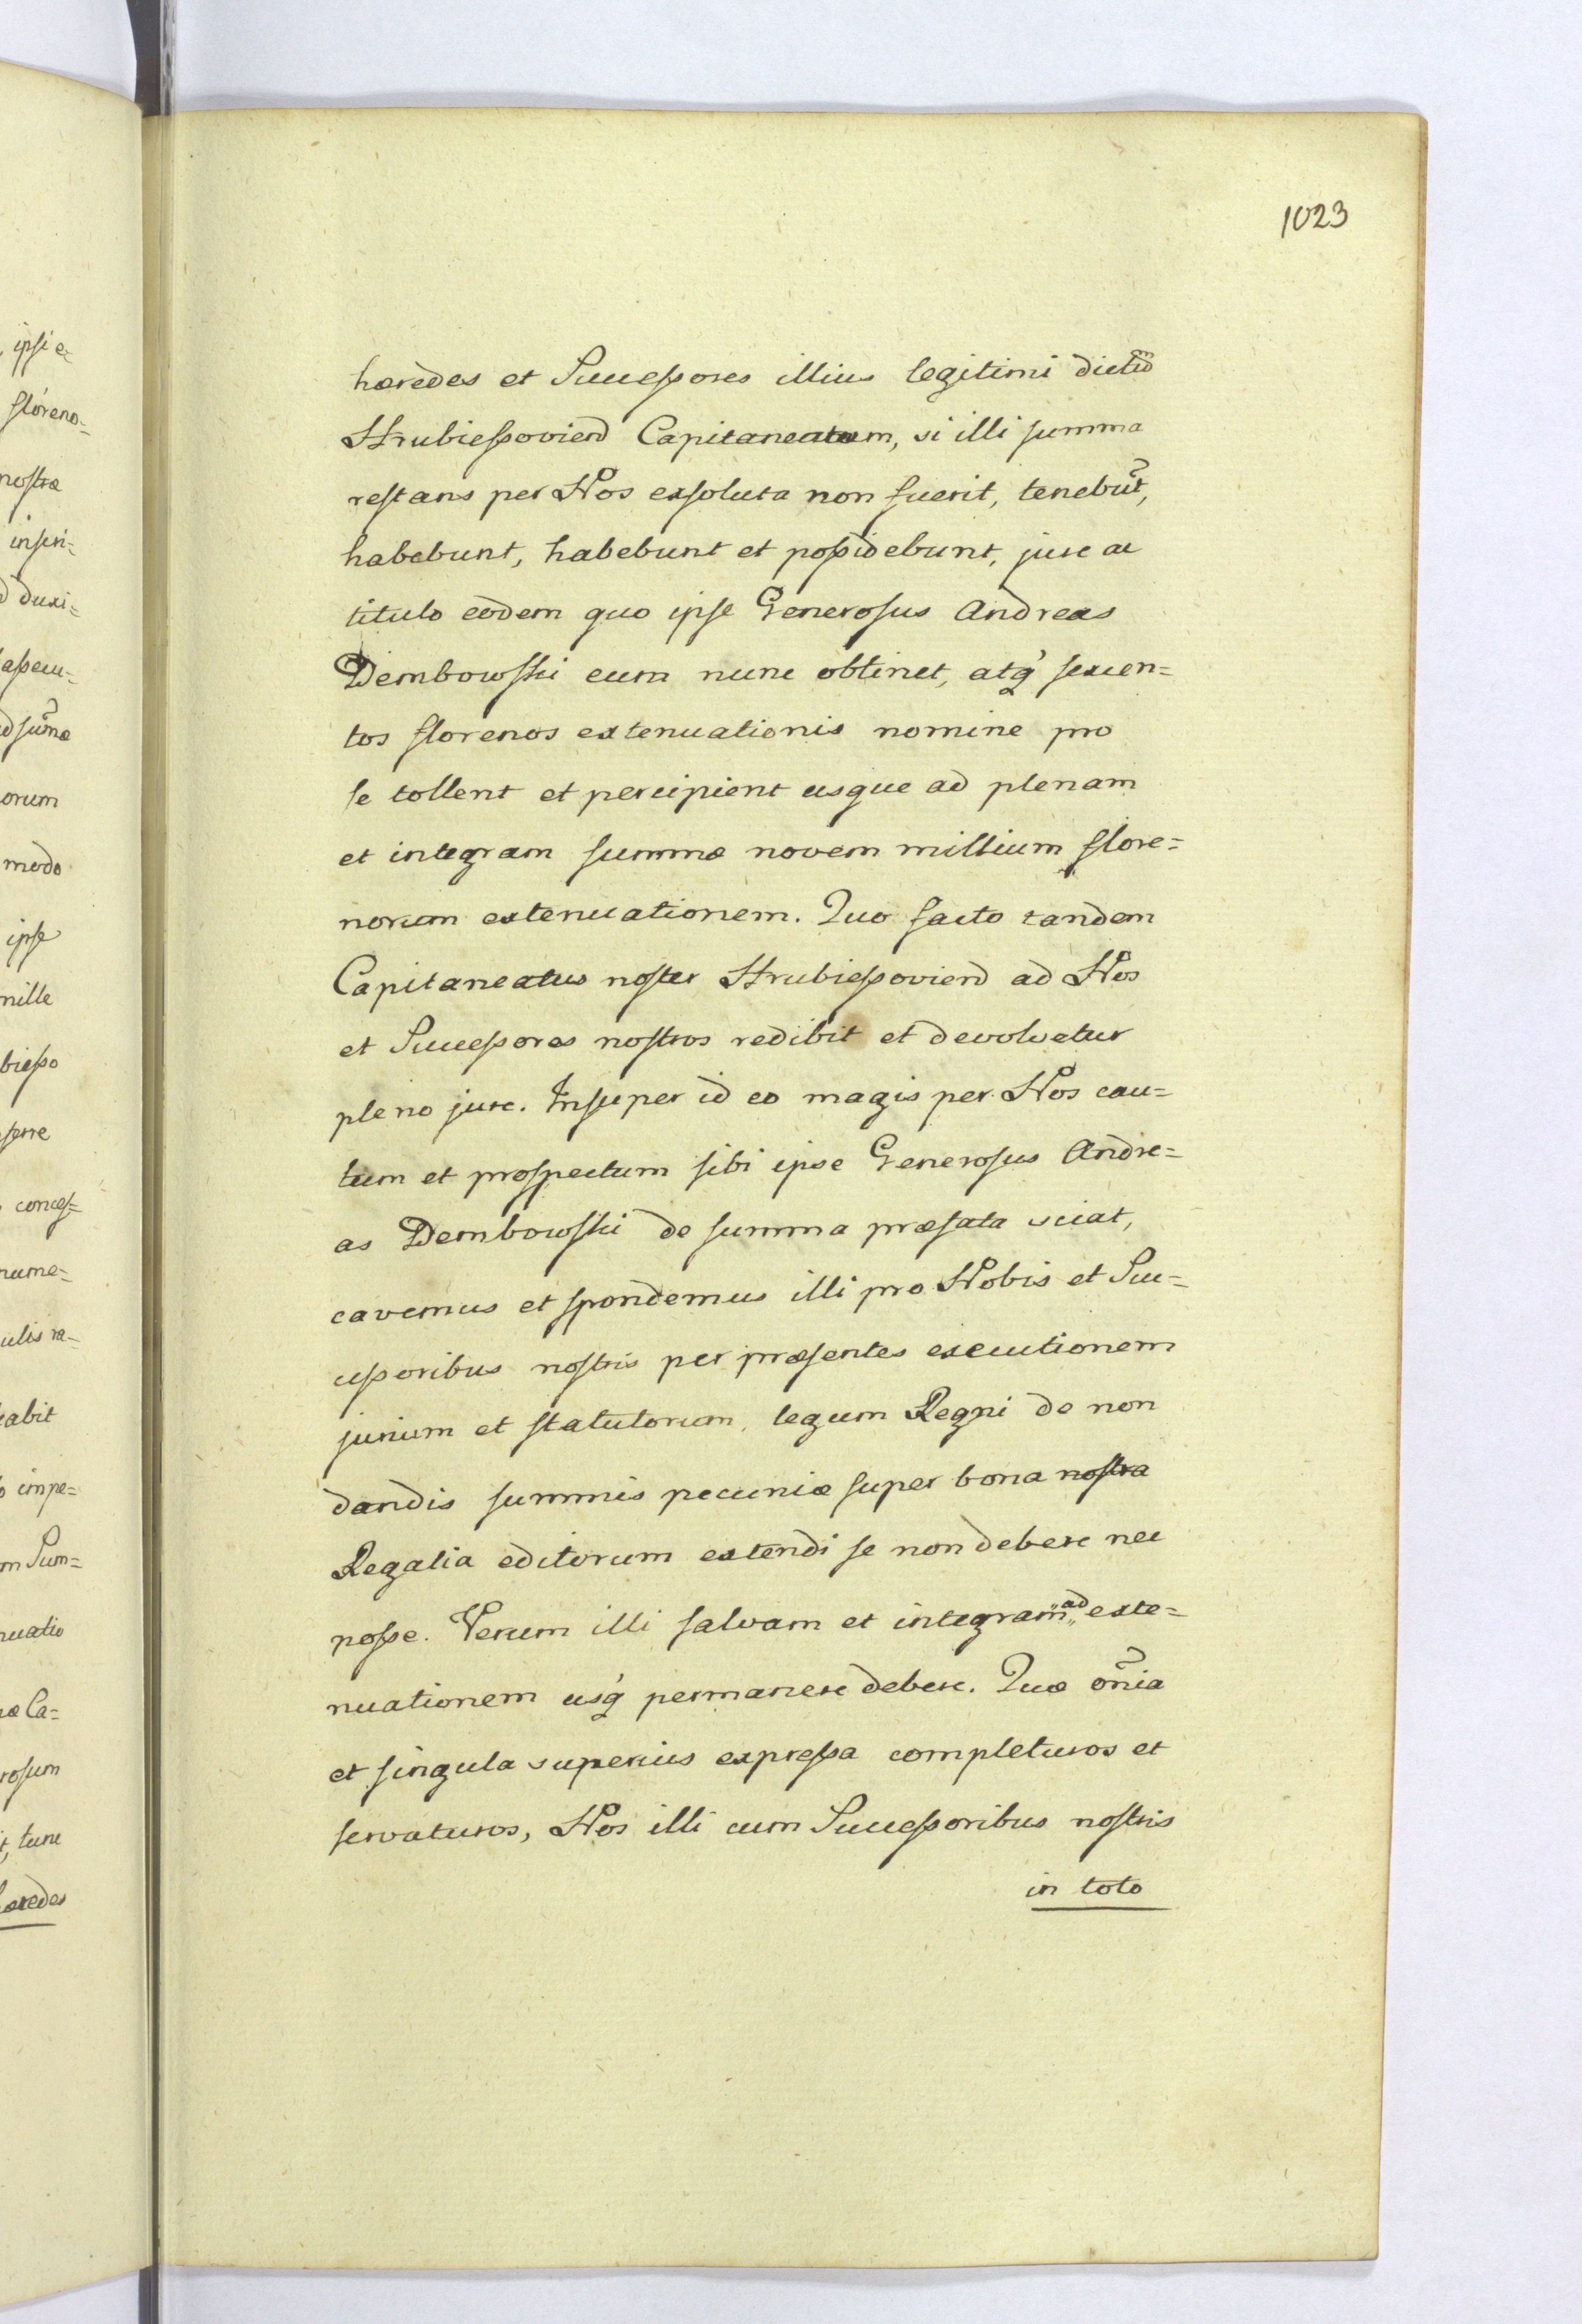 1023
hæredes et Successores illius legitimi dictũ
Hrubieszoviens Capitaneatum, si illi summa
restans per Nos exsoluta non fuerit, tenebūt,
habebunt, habebunt et possidebunt, jure ac
titulo eodem quo ipse Generosus Andreas
Dembowski eum nunc obtinet, atq́ sexcen=
tos florenos extenuationis nomine pro
se tollent et percipient usque ad plenam
et integram summæ novem millium flore=
norum extenuationem. Quo facto tandem
Capitaneatus noster Hrubieszoviens ad Nos
et Successores nostros redibit et devolvetur
pleno jure. Insuper id eo magis per Nos cau=
tum et prospectum sibi ipse Generosus Andre=
as Dembowski de summa præfata sciat,
cavemus et spondemus illi pro Nobis et Suc=
cessoribus nostris per præsentes executionem
jurium et statutorum, legum Regni de non
dandis summis pecuniæ super bona nostra
Regalia editorum extendi se non debere nec
posse. Verum illi salvam et integram „ad„ exte=
nuationem usq́ permanere debere. Quæ om̃ia
et singula superius expressa completuros et
servaturos, Nos illi cum Successoribus nostris
in toto
ipsi ex
floreno=
nostræ
inseri=
duxi=
assecu=
sum̃æ
orum
modo
ipse
mille
bieszo
ferre
conces=
nume=
ulis ra=
abit
impe=
m Sum=
nuatio
æ Ca=
rosum
t, tunc
hæredes